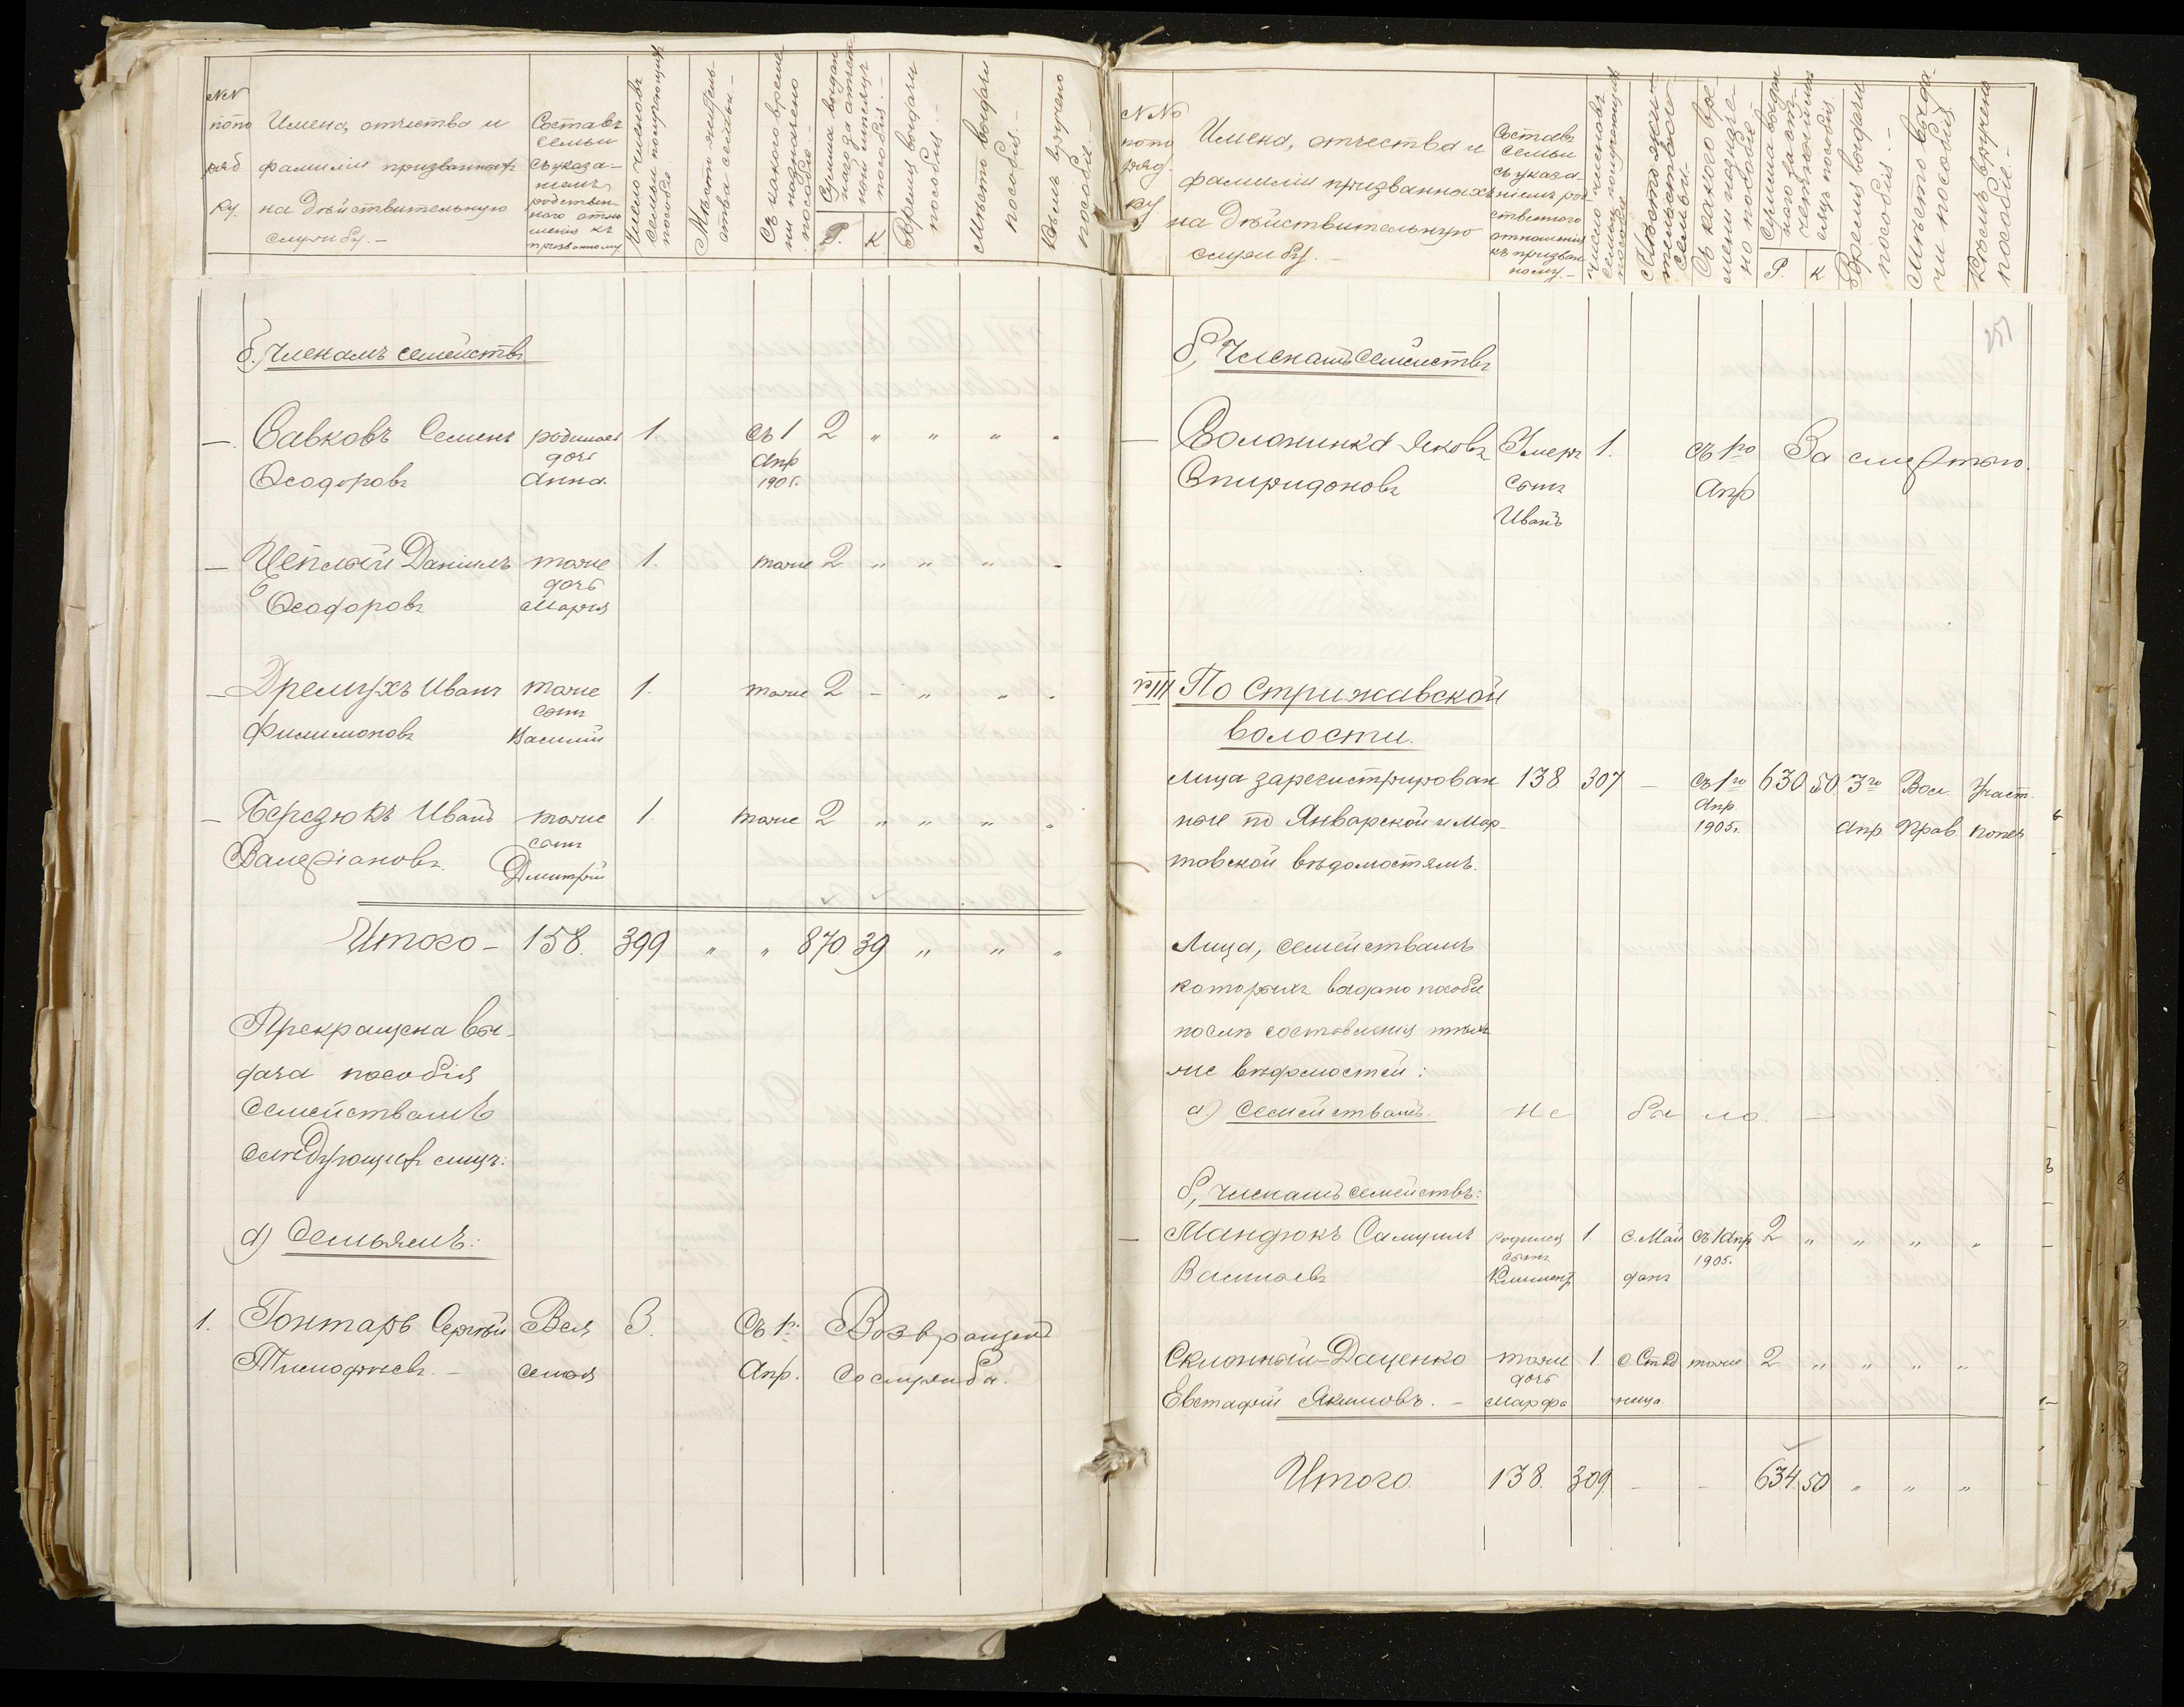 №№ по по рядку.
Имена, отчества и фамиліи призванныхъ на действительную службу.—
Составъ семьи съ указаніемъ родственнаго отношенія къ призванному
Число членовъ семьи получающихъ пособіе
Мѣсто жительства семьи.—
Съ какого времени назначено пособіе.—
Сумма выдан
пособія.—
Р. К
Время выдачи пособія.—
Мѣсто выдачи пособія.—
Кѣмъ вручено пособіе.—
б. Членамъ семействъ
—. Савковъ Семенъ родилась 1. съ 1 2 „ „ „ „
Ѳеодоровъ дочь Анна. Апр 1905.
— Даніилъ тоже 1. тоже 2 „ „ „ „
Ѳеодоровъ дочь Марія
— Дремухъ Иванъ тоже 1. тоже 2 – „ „ „
Филимоновъ сынъ Василій
— Березюкъ Иванъ тоже 1. тоже 2 „ „ „ „
Валеріановъ. сынъ Дмитрій
Итого – 158. 399 „ „ 870 39 „ „ „
Прекращена вы-
дача пособія
семействамъ
слѣдующихъ лицъ:
а) Семьямъ:
1. Гонтарь Сергѣй Вся 3. Съ 1. Возвращенъ
Тимофѣевъ.— семья Апр. со службы.
№№ по по ряд. ку
Имена, отчества и фамиліи призванныхъ на дѣйствительную службу.—
Составъ семьи съ указаніемъ родственнаго отношенія къ призванному.—
Число членовъ семьи получающихъ пособіе
Мѣсто жительства семьи.—
Съ какого времени назначено пособіе.
Р. К
Время выдачи пособія.—
Мѣсто выдачи пособія.—
Кѣмъ вручено пособіе.—
б, Членамъ семействъ
— Солонинка Яковъ Умеръ 1. съ 1го За смертью.
Спиридоновъ сынъ Иванъ Апр
VIII По Стрижавской
волости.
Лица зарегистрирован 138 307 — съ 1го 630 50 3го Вол. Участ.
ные по Январской и Мар- Апр. 1905г. Апр Прав. попеч
товской вѣдомостямъ.
Лица, семействамъ
которыхъ выдано пособіе
послѣ составленія тѣхъ
же вѣдомостей:
а) Семействамъ. не было. —
б, Членамъ семействъ:
— Мандюкъ Самуилъ родился 1 с. Май съ 1 Апр 2 „ „ „ „
Васильевъ сынъ Климент данъ 1905.
Склонный-Даценко тоже 1. с. Стад тоже 2 „ „ „ „
Евстафій Якимовъ.— дочь Марфа ница.
Итого. 138. 309. – – 634. 50 „ „ „